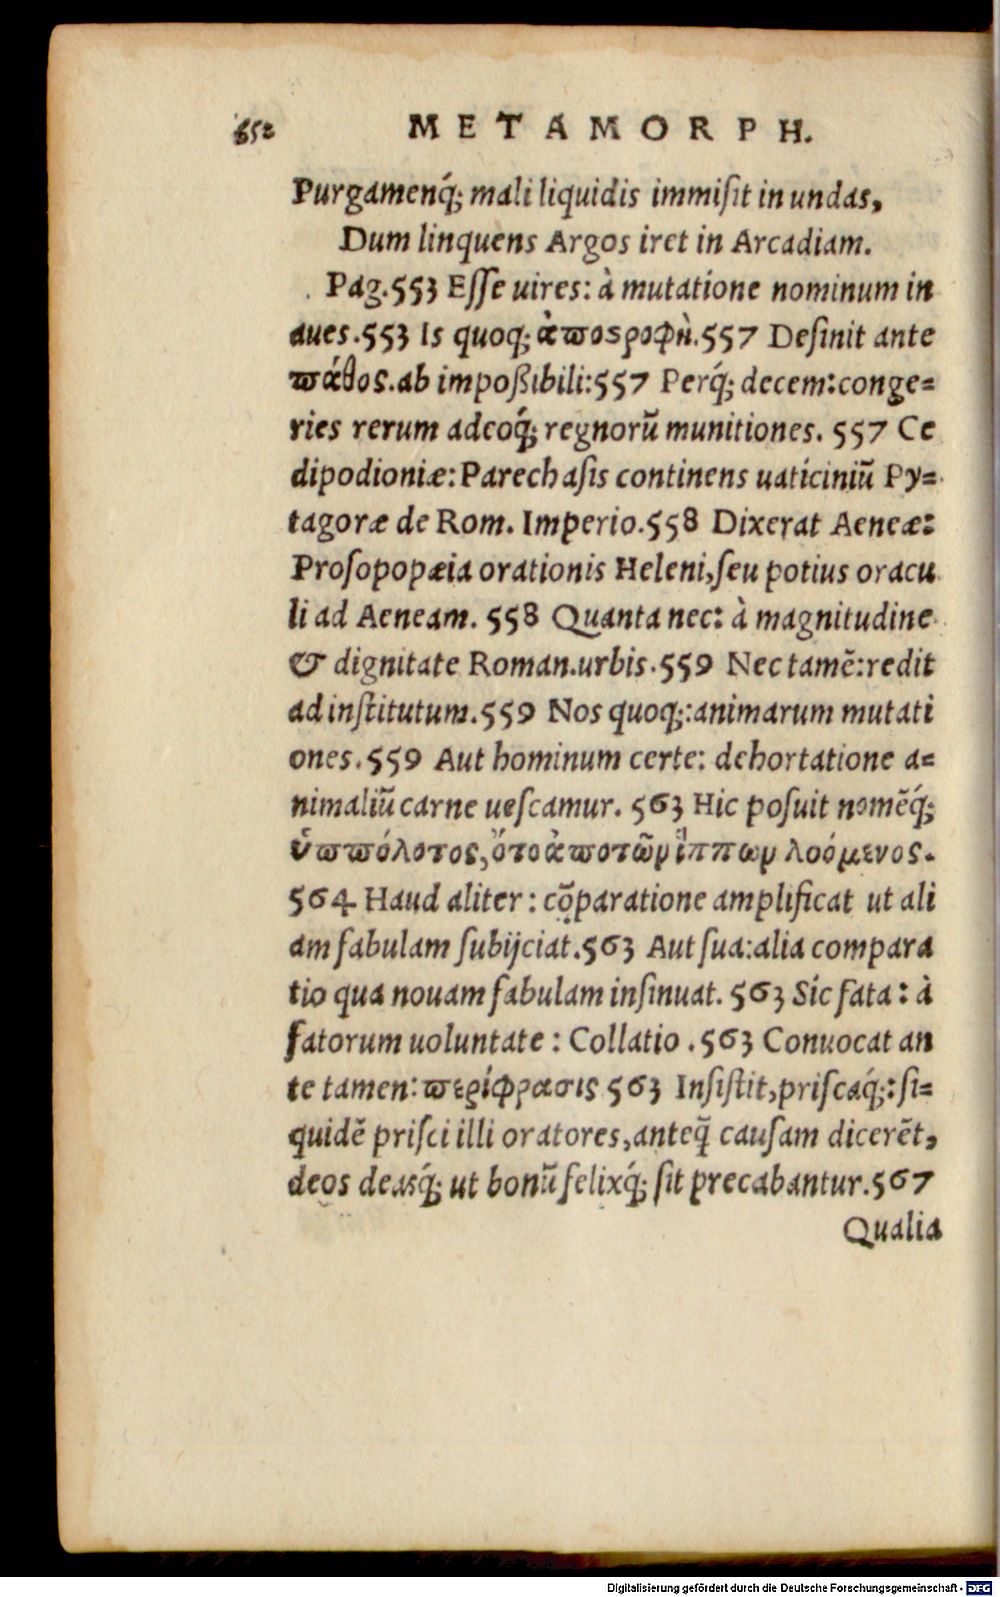 652 METAMORPH.
Purgamenq́; mali liquidis immiſit in undas,
Dum linquens Argos iret in Arcadiam.
Pag.553 Eſſe uires: à mutatione nominum in
aues.553 Is quoq; ἀποςροφὴ.557 Deſinit ante
πάθος.ab impoßibili:557 Perq́; decem:conge=
ries rerum adeoq́; regnorũ munitiones. 557 Ce
dipodioniæ:Parechaſis continens uaticiniũ Py=
tagoræ de Rom. Imperio.558 Dixerat Aeneæ:
Proſopopæia orationis Heleni,ſeu potius oracu
li ad Aeneam. 558 Quanta nec: à magnitudine
& dignitate Roman.urbis.559 Nec tamẽ:redit
ad inſtitutum.559 Nos quoq;:animarum mutati
ones.559 Aut hominum certe: dehortatione a=
nimaliũ carne ueſcamur. 563 Hic poſuit nomẽq́;
ὕππόλοτος,ὅτο ἀποτῶν ἵππων λοόμενος.
564 Haud aliter: cõparatione amplificat ut ali
am fabulam ſubijciat.563 Aut ſua:alia compara
tio qua nouam fabulam inſinuat. 563 Sic fata: à
fatorum uoluntate: Collatio.563 Conuocat an
te tamen: περίφρασις 563 Inſiſtit,priſcaq́;:ſi=
quidẽ priſci illi oratores,anteq̃ cauſam dicerẽt,
deos deasq́; ut bonũ felixq́; ſit precabantur.567
Qualia
Digitalisierung gefördert durch die Deutsche Forschungsgemeinschaft - DFG